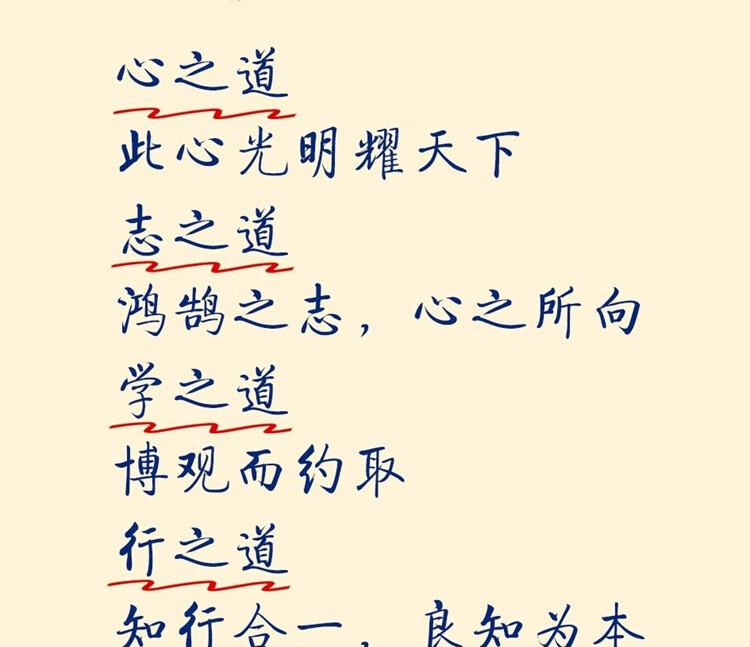 心之道
此心光明耀天下
志之道
鸿鹄之志，心之所向
学之道
博观而约取
行之道
知行合一，良知为本